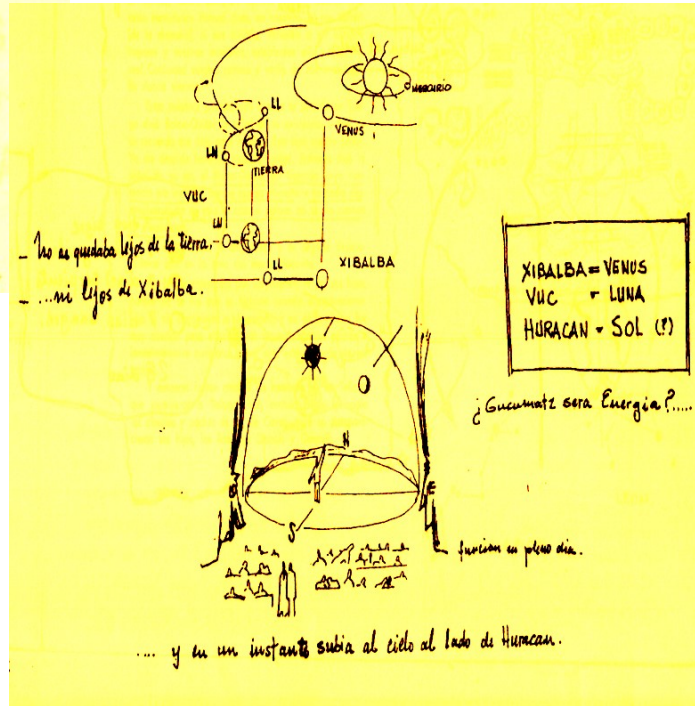 MERCURIO
LL
VENUS
LN
TIERRA
VUC
LN
- No es quedaba lejos de la tierra.
LL
XIBALBA
- ...ni lejos de Xibalba.
XIBALBA = VENUS
VUC = LUNA
HURACAN = SOL (?)
¿Gucumatz sera Energia?.....
N
E
S
funcion en pleno dia.
.... y en un instante subia al cielo al lado de Huracan.